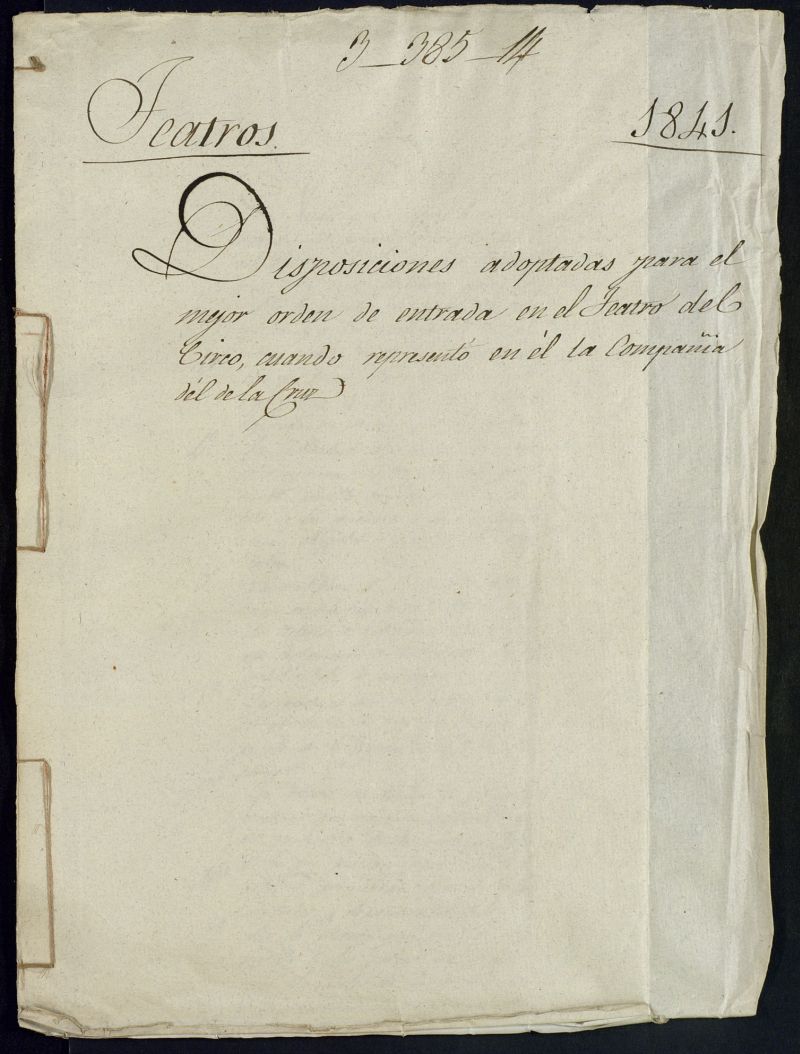 3-385-14
Teatros. 1841.
Disposiciones adoptadas para el
mejor orden de entrada en el Teatro del
Circo, cuando representó en él la Compañia
dél de la Cruz